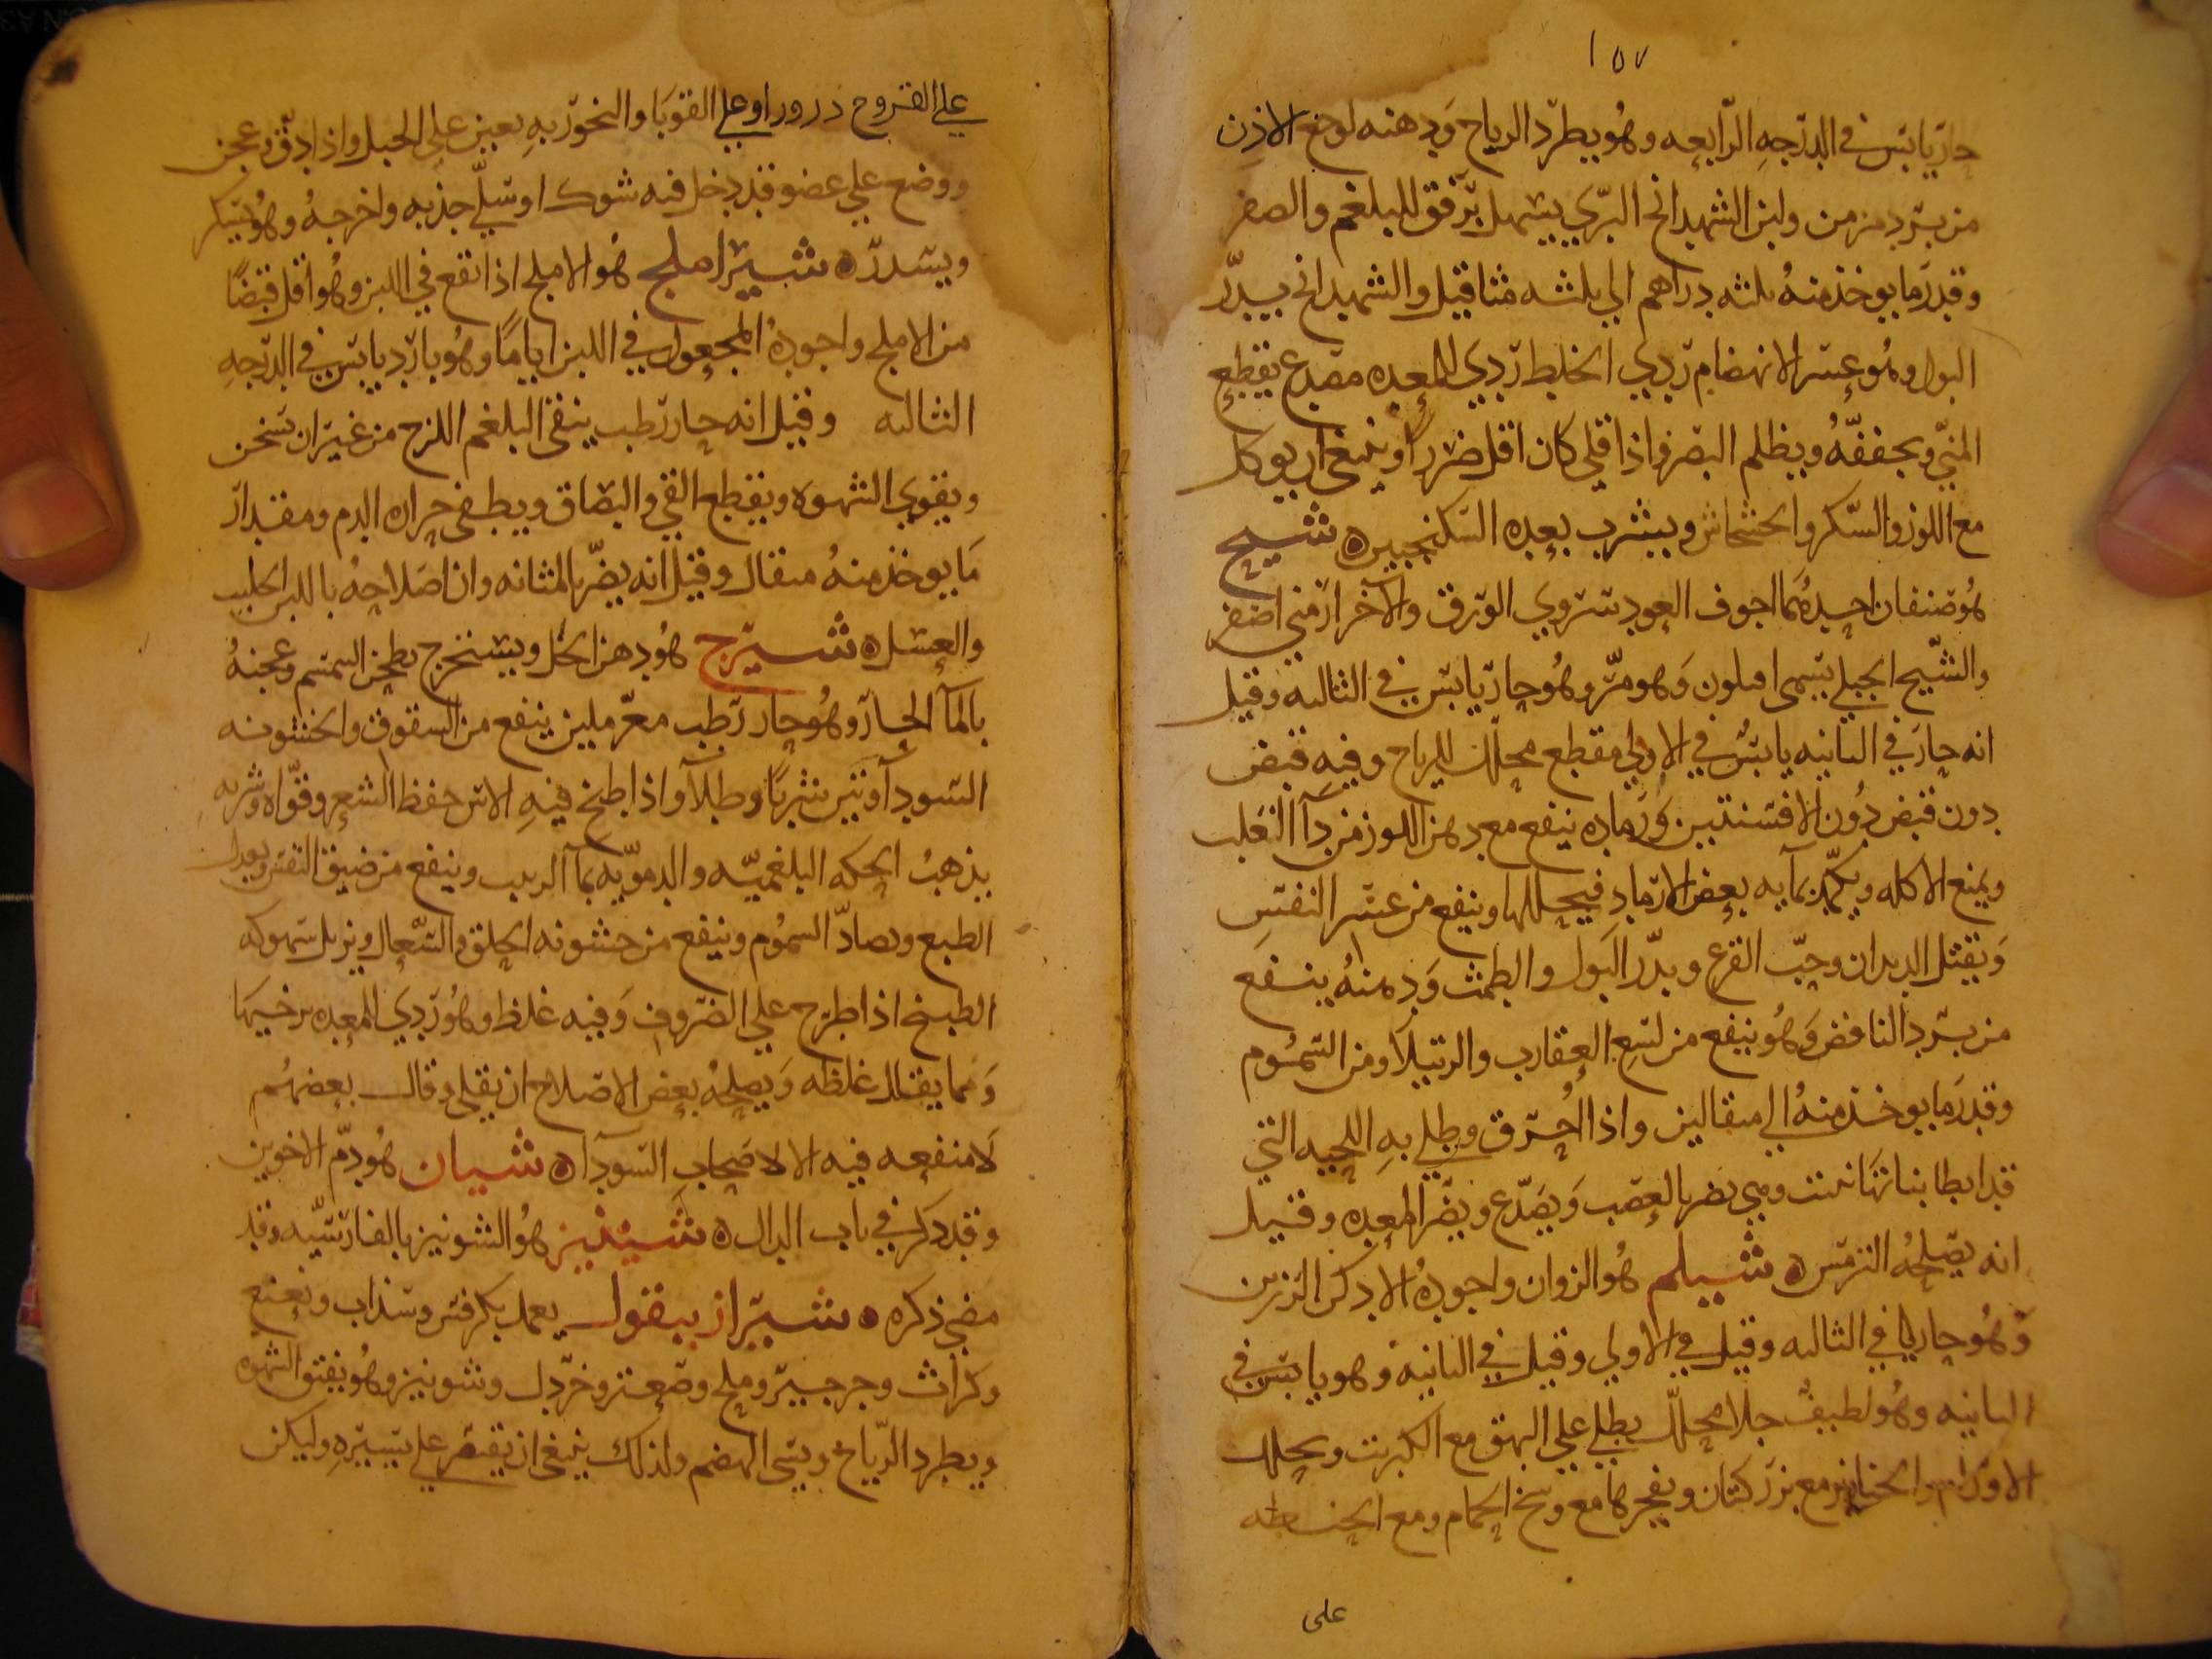 ١٥٧
حار يابس في الدرجه الرابعه وهو يطرد الرياح ودهنه لوجع الاذن
من برد مزمن ولبن الشهدانج البري يسهل برفق للبلغم والصفر
وقدر ما يوخذ منه ثلثه دراهم الي ثلثه مثاقيل والشهدانج يدر
البول وهو عسر الانهضام ردي الخلط ردي للمعده مصدع يقطع
المني ويجففه ويظلم البصر واذا قلي كان اقل ضررا وينبغي ان يوكل
مع اللوز والسكر والخشخاش ويشرب بعده السكنجبين ه شيح
هو صنفان احدهما اجوف العود سروي الورق والآخر ارمني اصفر
والشيح الجبلي يسمى وهو مر وهو حار يابس في الثالثه وقيل
انه حار في الثانيه يابس في الاولي مقطع محلل للرياح وفيه قبض
دون قبض دون الافسنتين ورماده ينفع مع دهن اللوز من دآ الثعلب
ويمنع الاكله ويكمد بمآيه بعض الارماد فيحللها وينفع من عسر النفس
ويقتل الديدان وحب القرع ويدر البول والطمث ودهنه ينفع
من برد النافض وهو ينفع من لسع العقارب والرتيلآ ومن السموم
وقدر ما يوخذ منه الي مثقالين واذا احرق وطلي به اللحيه التي
قد ابطا نباتها نبتت وهي يضر بالعصب ويصدع ويضر المعده وقيل
انه يصلحه الترمس ه شيلم هو الزوان واجوده الادكن الرزين
وهو حار في الثالثه وقيل في الاولي وقيل في الثانيه وهو يابس في
الثانيه وهو لطيف جلا محلل يطلي علي البهق مع الكبريت ويحلل
الاورام والخنازير مع بزر كتان ويفجرها مع وسخ الحمام ومع الحنطه
على
علي القروح درور او علي القوبا والبخور به يعين علي الحبل واذا دق وعجن
ووضع علي عضو قد دخل فيه شوك او سلي جذبه واخرجه وهو يسكر
ويسدر ه شير املج هو الاملج اذا نقع في اللبن وهو اقل قبضا
من الاملج واجوده المجعول في اللبن اياما وهو بارد يابس في الدرجه
الثالثه وقيل انه حار رطب ينقي البلغم اللزج من غير ان يسخن
ويقوي الشهوه ويقطع القي والبصاق ويطفي حراره الدم ومقدار
ما يوخذ منه مثقال وقيل انه يضر بالمثانه وان اصلاحه باللبن الحليب
والعسل ه شيرج هو دهن الحل ويستخرج بطحن السمسم وعجنه
بالمآ الحار وهو حار رطب مغر ملين ينفع من الشقوق والخشونه
السودآوتين شربا وطلآ واذا طبخ فيه الاس حفظ الشعر وقواه وشربه
يذهب الحكه البلغميه والدمويه بمآ الزبيب وينفع من ضيق النفس ويعدل
الطبع ويضاد السموم وينفع من خشونه الحلق والسعال ويزيل سهوكه
الطبيخ اذا طرح علي الضروف وفيه غلظ وهو ردي للمعده يرخيها
ومما يقلل غلظه ويصلحه بعض الاصلاح ان يقلي وقال بعضهم
لا منفعه فيه الا لاصحاب السودآ ه شيان هو دم الاخوين
وقد ذكر في باب الدال ه شينيز هو الشونيز بالفارسيه وقد
مضي ذكره ه شيراز ببقول يعمل بكرفس وسذاب ونعنع
وكراث وجرجير وملح وصعتر وخردل وشونيز وهو يفتق الشهوه
ويطرد الرياح ويسي الهضم ولذلك ينبغي ان يقتصر علي يسيره وليكن